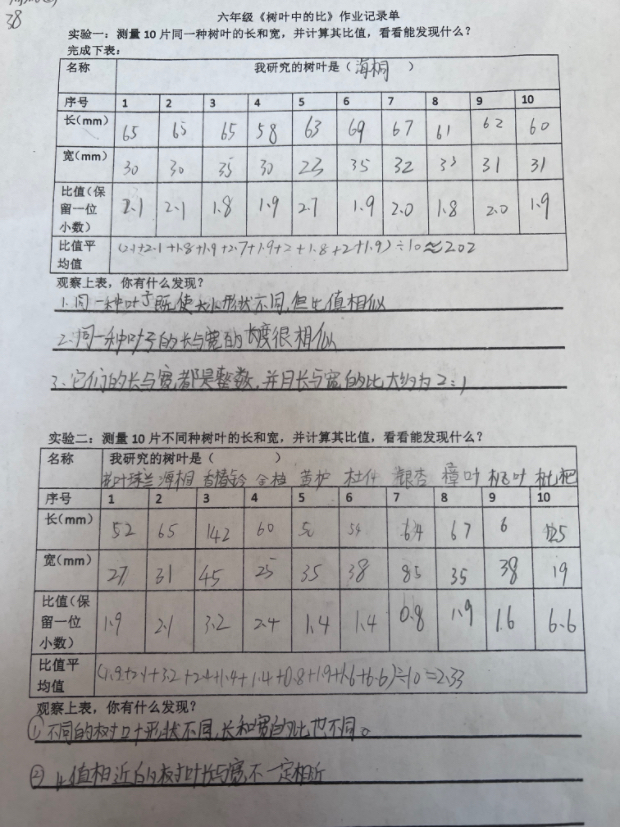 38
六年级《树叶中的比》作业记录单
实验一：测量 10 片同一种树叶的长和宽，并计算其比值，看看能发现什么？
完成下表：
名称 我研究的树叶是（海桐 ）
序号 1 2 3 4 5 6 7 8 9 10
长(mm) 65 65 65 58 63 69 67 61 62 60
宽(mm) 30 30 35 30 23 35 32 33 31 31
比值(保留一位小数) 2.1 2.1 1.8 1.9 2.7 1.9 2.0 1.8 2.0 1.9
比值平均值 (2.1+2.1+1.8+1.9+2.7+1.9+2+1.8+2+1.9)÷10≈2.02
观察上表，你有什么发现？
1.同一种叶子既使大小形状不同,但比值相似
2.同一种叶子的长与宽的长度很相似
3、它们的长与宽都是整数,并且长与宽的比大约为2:1
实验二：测量 10 片不同种树叶的长和宽，并计算其比值，看看能发现什么？
名称 我研究的树叶是（ ）
海桐 杜仲 银杏 樟叶 枇杷
序号 1 2 3 4 5 6 7 8 9 10
长(mm) 52 65 142 60 50 54 64 67 6 125
宽(mm) 27 31 45 25 35 38 85 35 38 19
比值(保留一位小数) 1.9 2.1 3.2 2.4 1.4 1.4 0.8 1.9 1.6 6.6
比值平均值 (1.9+2.1+3.2+2.4+1.4+1.4+0.8+1.9+1.6+6.6)÷10=2.33
观察上表，你有什么发现？
①不同的树叶形状不同,长和宽的比也不同。
②比值相近的树叶长与宽不一定相近